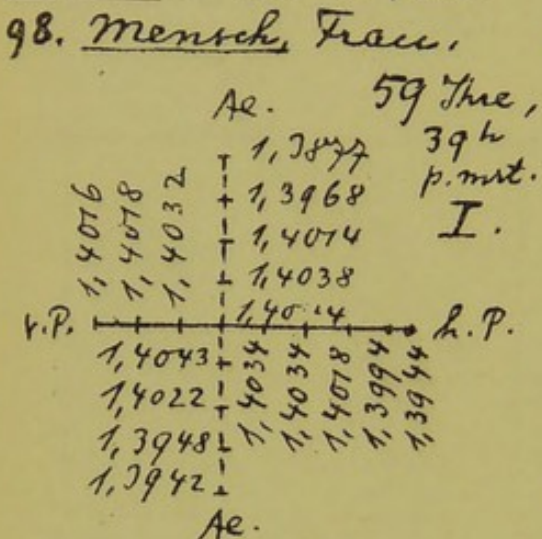 98. Mensch, Frau,
59 Ihre,
39 h
p. mrt.
I.
Ae.
1,3877
1,3968
1,4014
1,4038
1,4016
1,4018
1,4032
v.P.
h.P.
1,4043
1,4022
1,3948
1,3942
1,4034
1,4034
1,4018
1,3994
1,3944
Ae.